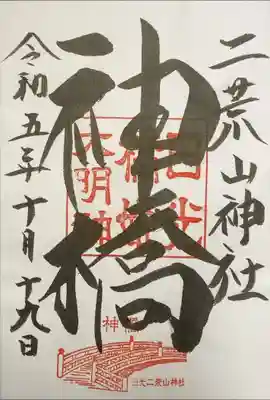 二荒山神社
神橋
令和五年十月十九日
神橋
日光二荒山神社